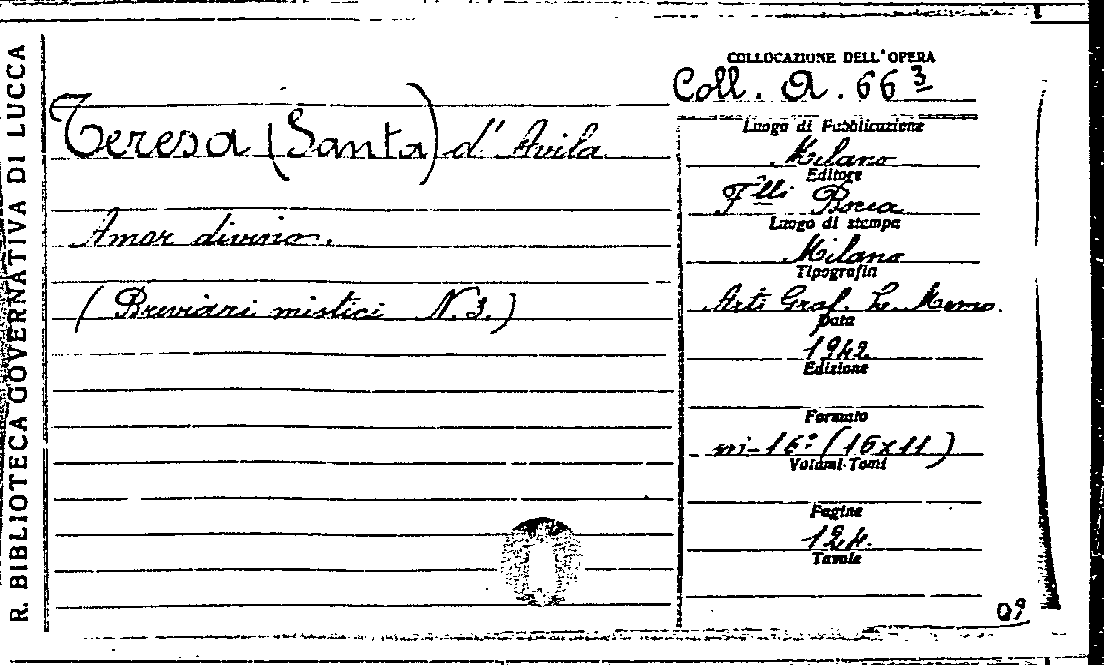 R. BIBLIOTECA GOVERNATIVA DI LUCCA
Teresa (Santa) d'Avila
Amor divino.
(Breviari mistici N. 3.)
COLLOCAZIONE DELL'OPERA
Coll. A. 66 3
Luogo di Pubblicazione
Milano
Editore
F.lli Bocca
Luogo di stampa
Milano
Tipografia
Arti Graf.
Data
1942
Edizione
Formato
in-16° (16x11)
Volumi-Tomi
Pagine
124.
Tavole